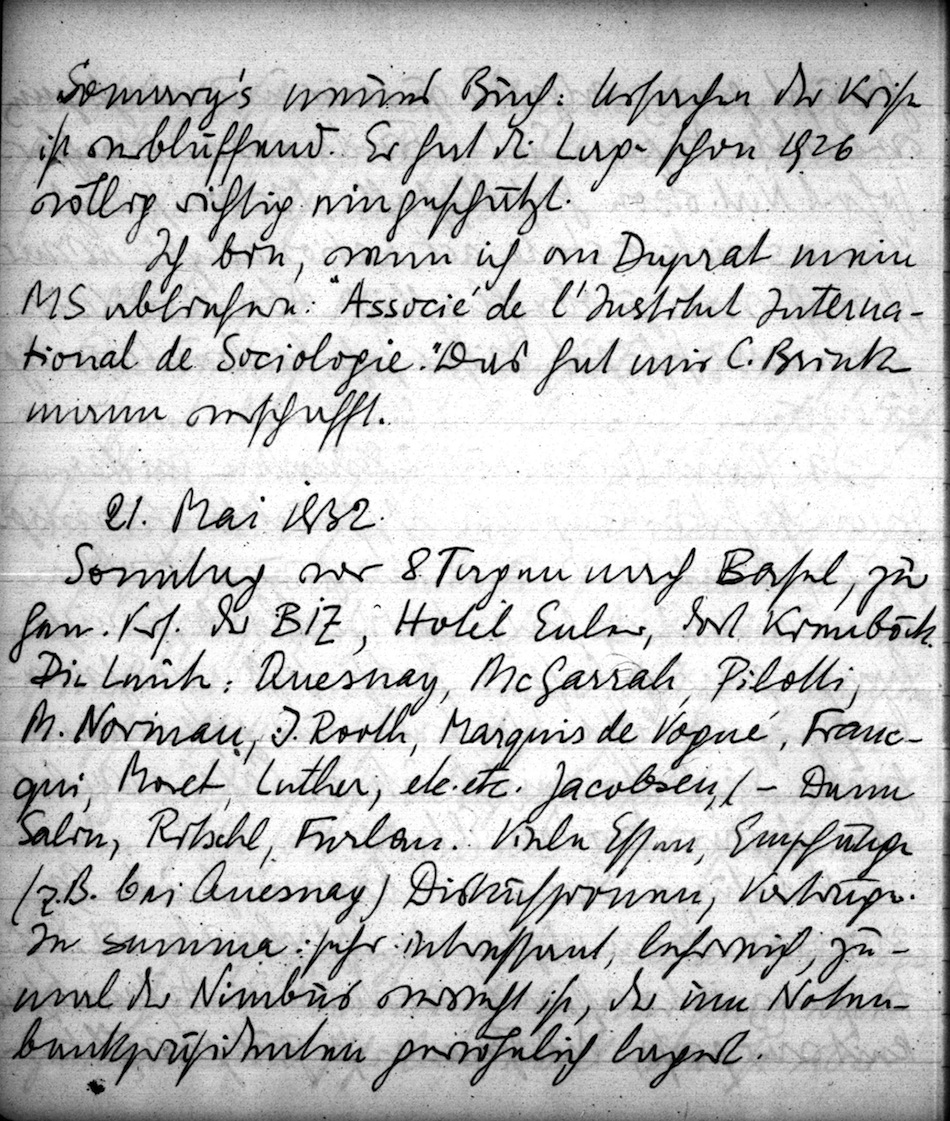 Somary's neues Buch: Ursachen der Krise
ist verblüffend. Er hat die Lage schon 1926
völlig richtig eingeschätzt.
Ich bin, wenn ich an Duprat mein
MS abliefere: "Associé de l'Institut Interna-
tional de Sociologie." Das hat mir C. Brink
mann verschafft.
21. Mai 1932.
Sonntag vor 8 Tagen nach Basel, zur
Gen. Vers. der BIZ, Hotel Euler, dort Kronböck.
Die Leute: Quesnay, McGarrah, Pilotti,
M. Norman, J. Rooth, Marquis de Vogué, Franc-
qui, Moret, Luther, etc. etc. Jacobsen, – Dann
Salin, Ritschl, Furlan. Viele Essen, Empfänge
(z.B. bei Quesnay) Diskussionen, Verträge.
In summa: sehr interessant, lehrreich, zu-
mal der Nimbus verraucht ist, der um Noten-
bankpräsidenten gewöhnlich lagert.